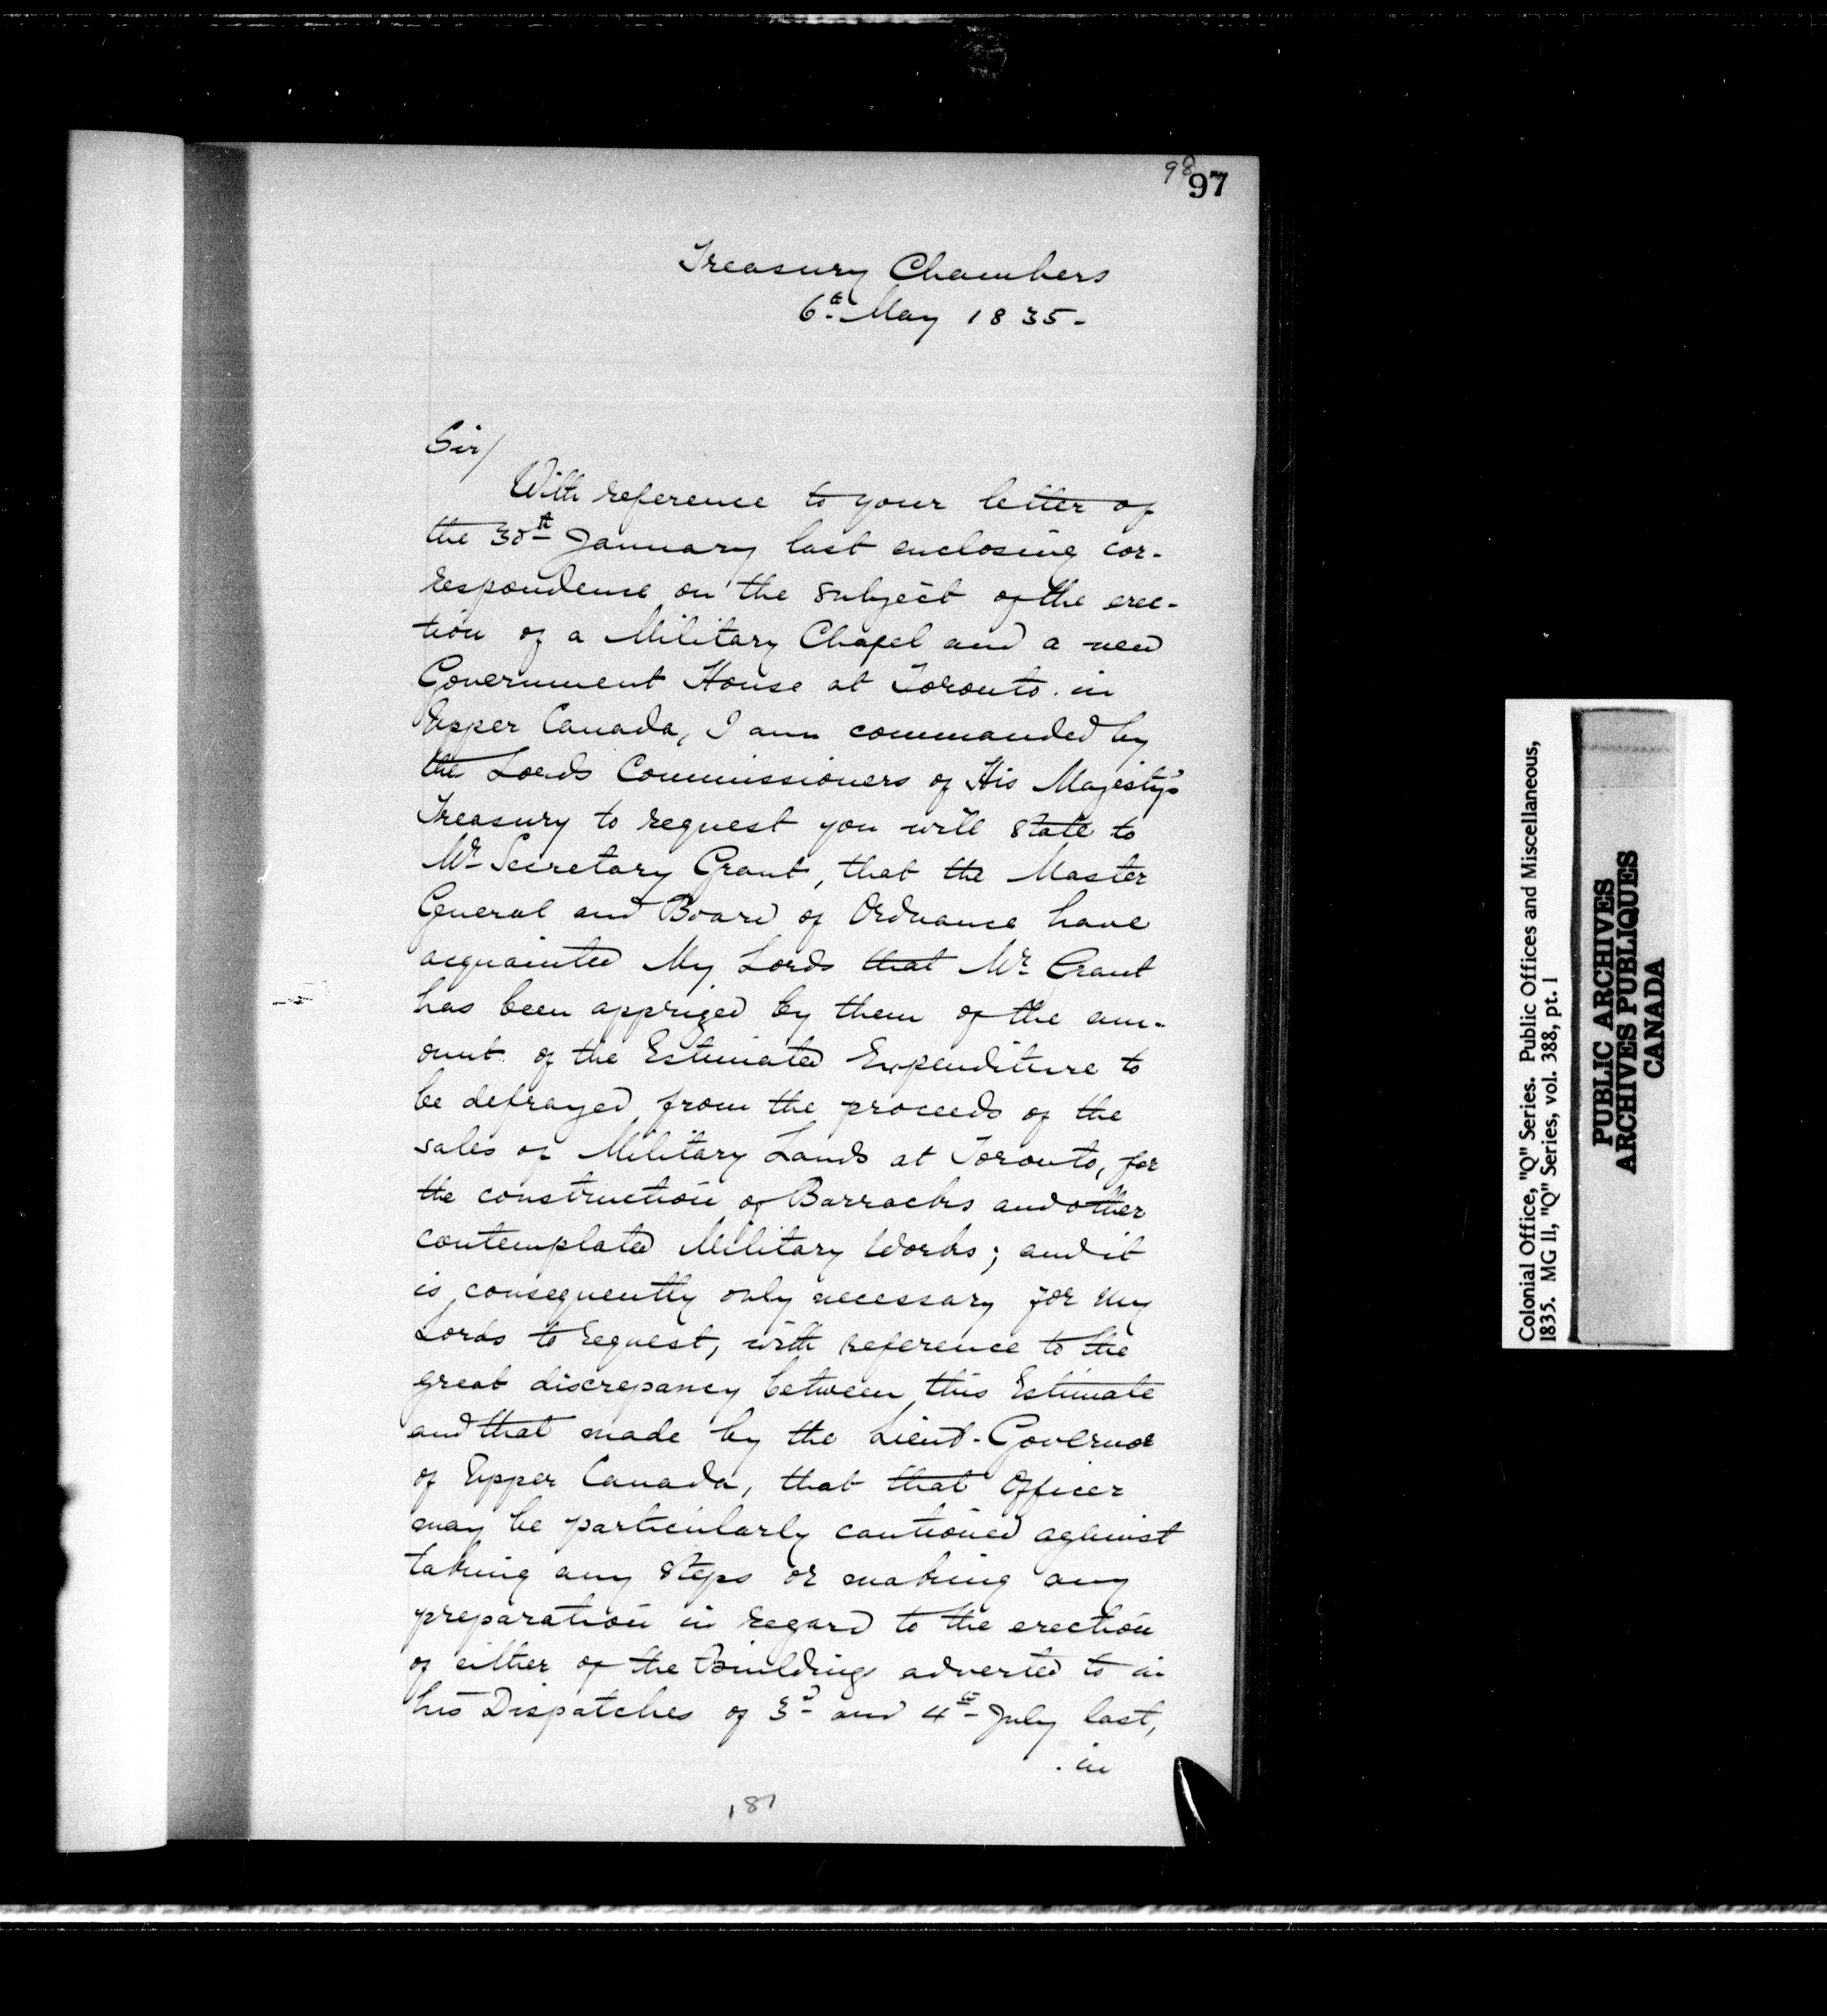 98
97
Treasury Chambers
6th May 1835-
Sir/
With reference to your letter of
the 30th January last enclosing cor-
respondence on the subject of the erec-
tion of a Military Chapel and a new
Government House at Toronto in
Upper Canada, I am commanded by
the Lords Commissioners of His Majesty's
Treasury to request you will state to
Mr Secretary Grant, that the Master
General and Board of Ordnance have
acquainted My Lords that Mr Grant
has been apprized by them of the am-
ount of the Estimated Expenditure to
be defrayed from the proceeds of the
sales of Military Lands at Toronto, for
the construction of Barracks and other
contemplated Military Works; and it
is consequently only necessary for my
Lords to request, with reference to the
great discrepancy between this Estimate
and that made by the Lieut-Governor
of Upper Canada, that that Officer
may be particularly cautioned against
taking any steps or making any
preparation in regard to the erection
of either of the Buildings adverted to in
his Dispatches of 3d and 4th July last,
. in
181
Colonial Office, "Q" Series. Public Offices and Miscellaneous,
1835. MG 11, "Q" Series, vol. 388, pt. 1
PUBLIC ARCHIVES
ARCHIVES PUBLIQUES
CANADA